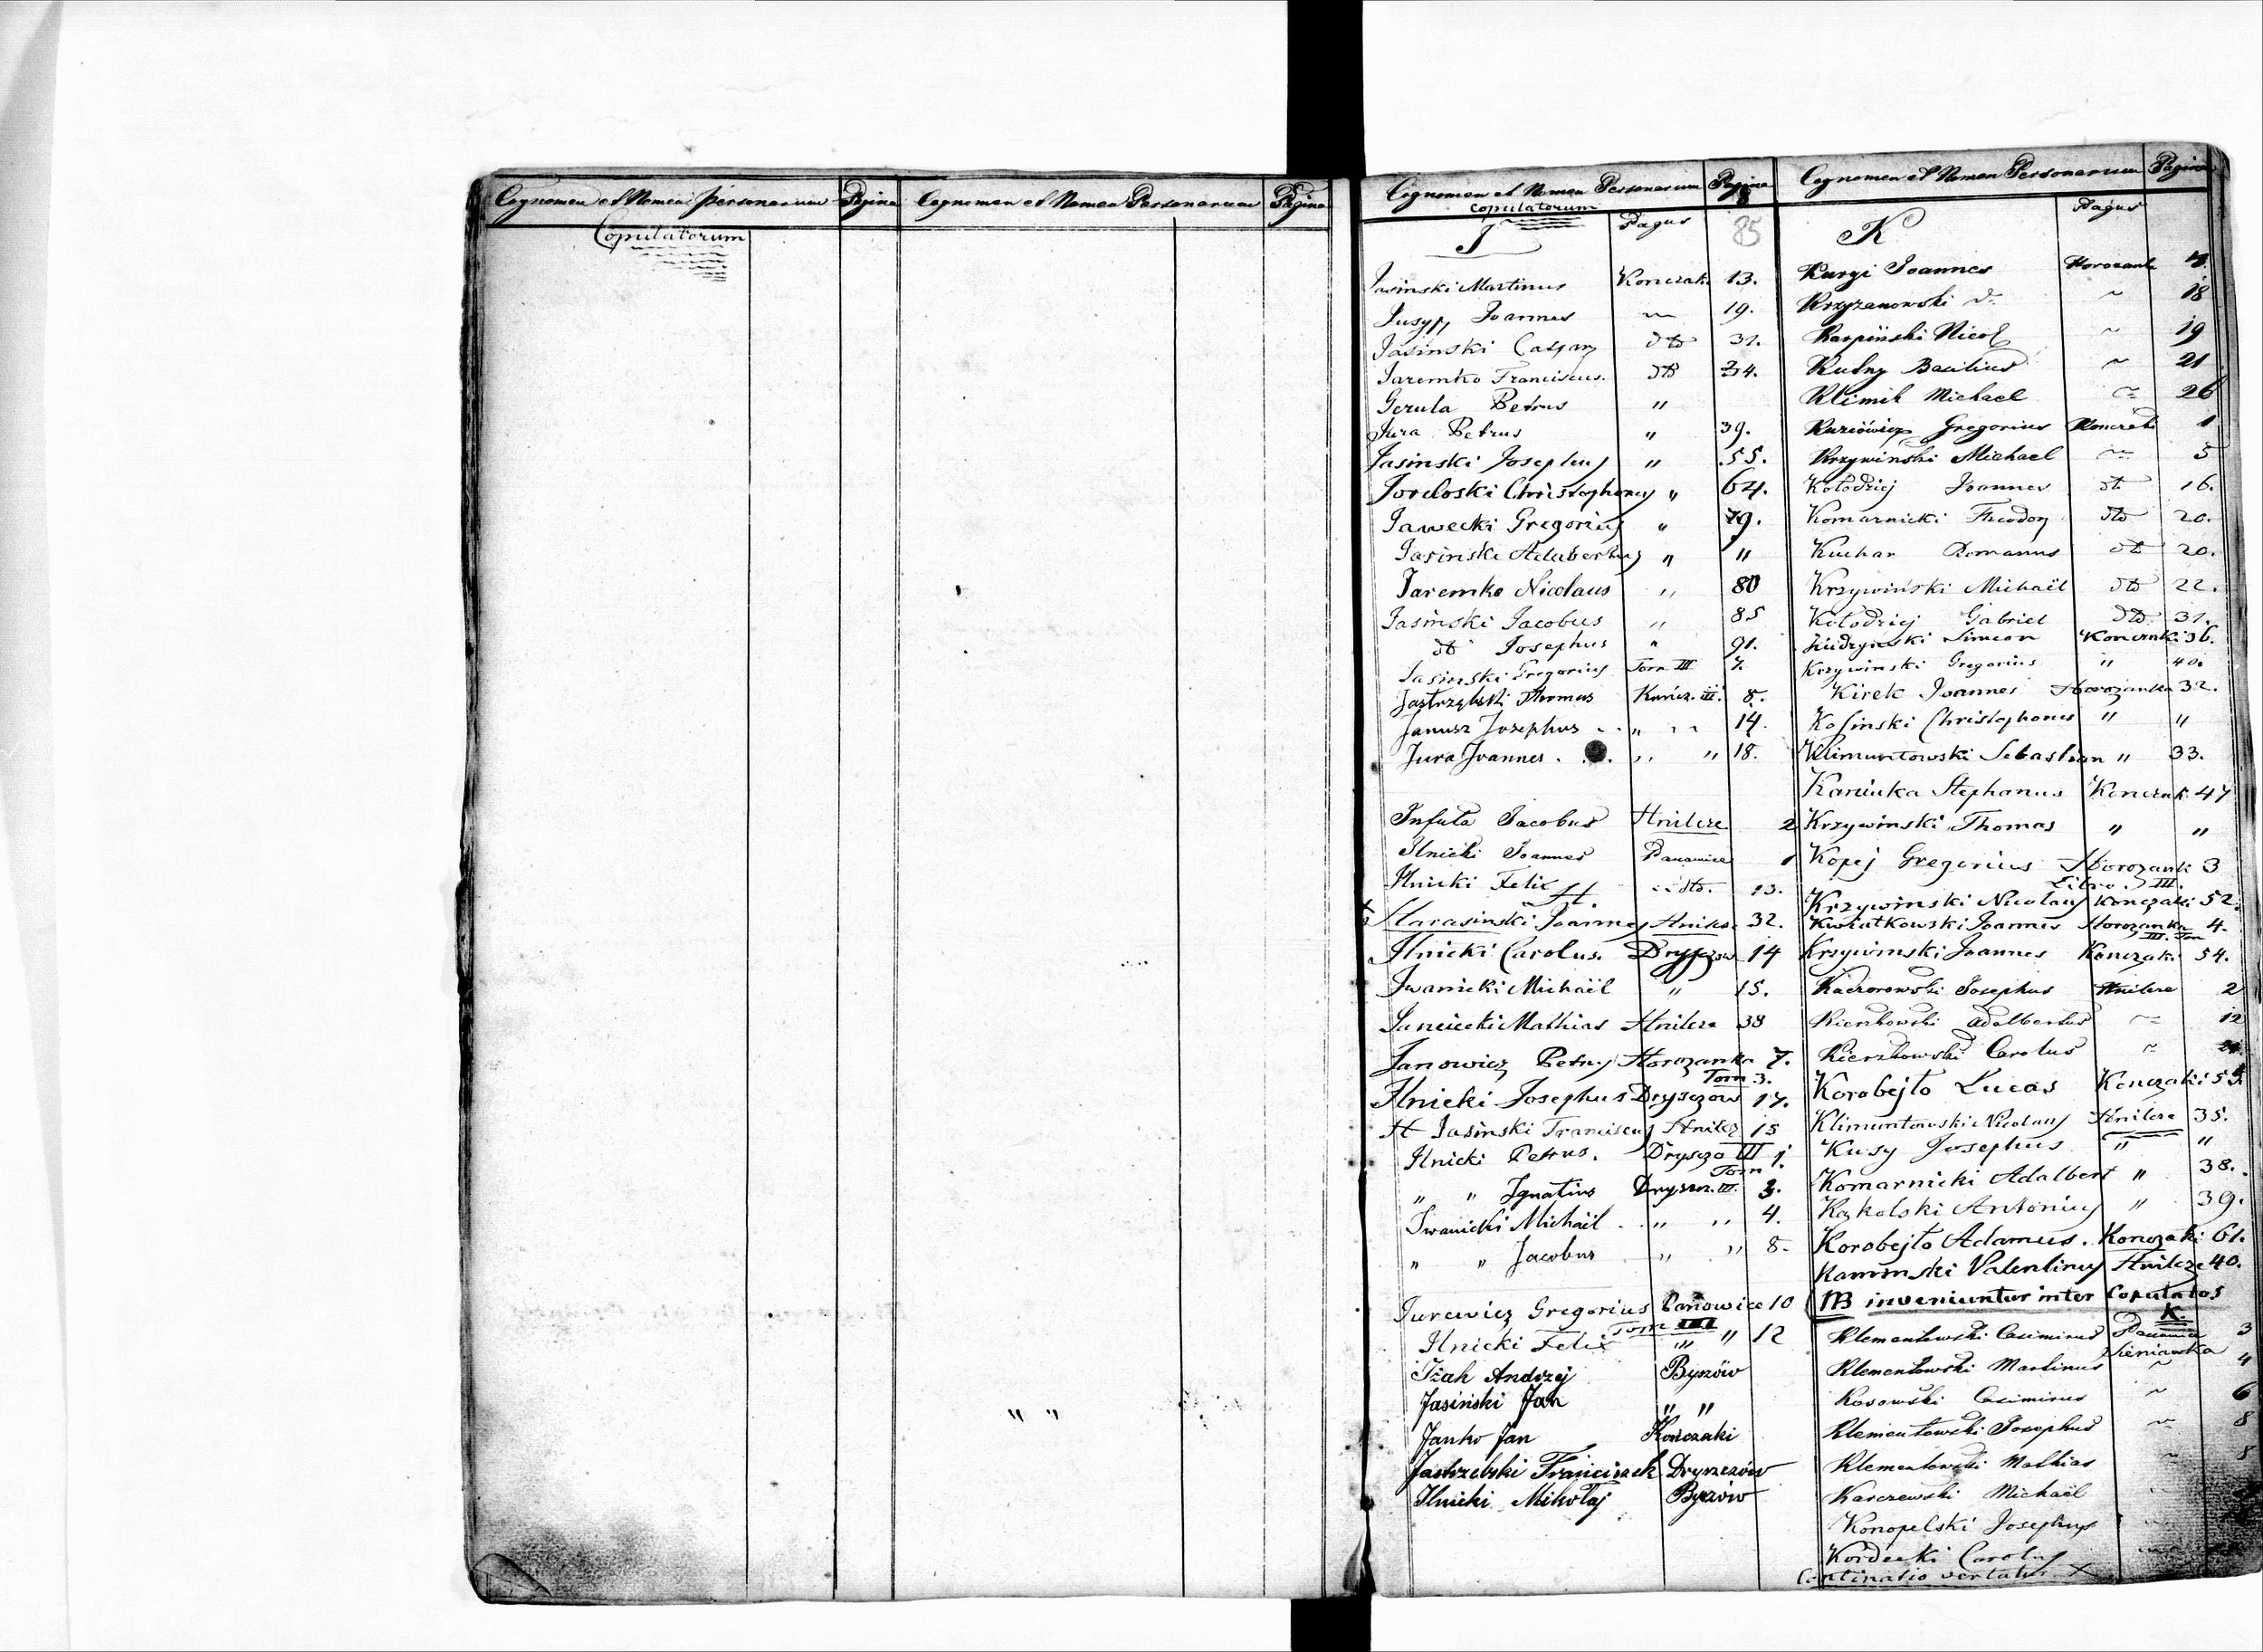 Cognomen et Nomen Personarum Pagina Cognomen et Nomen Personarum Pagina
Copulatorum
" "
Cognomen et Nomen Personarum Pagina
copulatorum
J Pagus 85
Jasinski Martinus Konczaki 13.
Jusyp Joannes 19.
Jasinski Caspar dto 31.
Jaremko Franciscus. dto 34.
Gerula Petrus "
Jura Petrus " 39.
Jasinski Josephus " 55.
Joreloski Christophorus " 64.
Jawecki Gregorius " 79.
Jasinski Adalbertus " "
Jaremko Nicolaus " 80
Jasinski Jacobus " 85
dto Josephus " 91.
Jasinski Gregorius Tom III 7.
Jastrzębski Thomas Kończ. III. 8.
Janusz Josephus " 14.
Jura Joannes . " " 18.
Infuła Jacobus Hnilcze 2
Ilnicki Joannes Panowice 1
Ilnicki Felix dto. 13.
Harasinski Joannes Hnilcze 32.
Ilnicki Carolus. Dryszczow 14
Iwanicki Michaël " 15.
Janicecki Mathias Hnilcze 38
Janowicz Petrus Horozanka 7.
Tom 3.
Ilnicki Josephus Dryszczow 17.
H Jasinski Franciscus Hnilcz 15
Ilnicki Petrus. Dryszczo III 1.
Tom
" " Ignatius Dryszcz. III. 3.
Iwanicki Michaël . " " 4.
" " Jacobus " " 8.
Jurewicz Gregorius Panowice 10
Tom III
Ilnicki Felix " " 12
Iżak Andrzej Byszów
Jasiński Jan " "
Janko Jan Kończaki
Jastrzebski Franciszek Dryszczów
Ilnicki Mikołaj Byszów
Cognomen et Nomen Personarum Pagina
K Pagus
Kurgi Joannes Horozank
Krzyzanowski d. ~ 18
Karpiński Nicol ~ 19
Kulny Basilius ~ 21
Klimik Michael ~ 26
Gregorius Konczaki 1
Krzywiński Michael ~ 5
Kołodziej Joannes dt 16.
Komarnicki Theodor dto 20.
Kuchar Romanus dt 20.
Krzywiński Michaël dto 22.
Kołodziej Gabriel dto 31.
Simeon Konczaki 36.
Krzywinski Gregorius " 40.
Kirek Joannes Horozanka 32.
Kosinski Christophorus " "
Klimuntowski Sebastian " 33.
Kaniuka Stephanus Konczak 47
Krzywinski Thomas " "
Kopej Gregorius Horozank 3
Libro III.
Krzywinski Nicolaus Konczaki 52.
Kwiatkowski Joannes Horozanka 4.
III. Tom
Krzywinski Joannes Konczaki 54.
Kaczorowski Josephus Hnilcze 2
Kierzkowski Adalbertus ~ 12
Kierzkowski Carolus ~
Korobejło Lucas Konczaki
Klimuntowski Nicolaus Hnilcze 35.
Kusy Josephus " "
Komarnicki Adalbert " 38.
Kąkolski Antonius " 39.
Korobejło Adamus. Konczaki 61.
Kaminski Valentinus Hnilcze 40.
NB inveniuntur inter Copulatos
K.
Klementowski Casimirus Panowice 3
Sieniawka
Klementowski Martinus ~ 4
Kosowski Casimirus ~ 6
Klementowski Josephus ~ 8
Klementowski Mathias ~ 8
Karczewski Michaël
Konopelski Josephus
Kordecki Carolus
Continatio vertatur